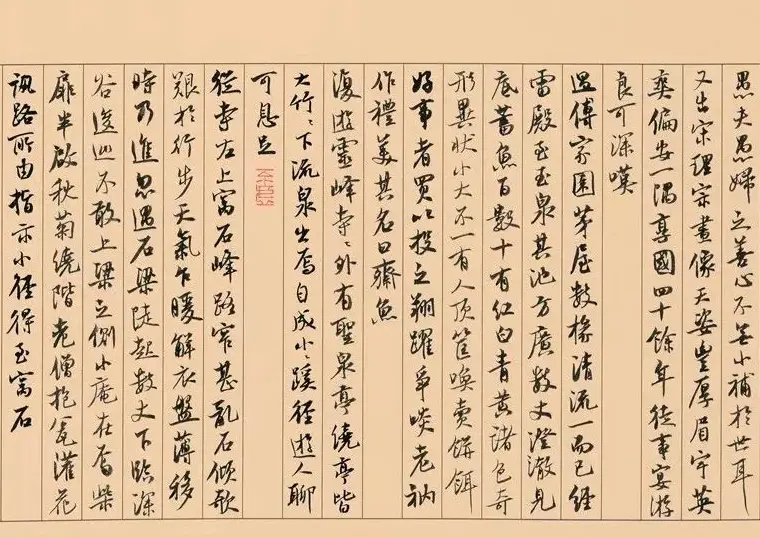 愚夫愚婦之善心不無小補於世耳
又出宋理宗畫像天姿豐厚眉宇英
爽偏安一隅享國四十餘年從事宴游
良可深嘆
過傅家園茅屋數椽清流一而已經
雷殿至玉泉其池方廣數丈澄澈見
底蓄魚百數十有紅白青黃諸色奇
形異狀小大不一有人頂筐喚賣餅餌
好事者買以投之翔躍爭啖老衲
作禮美其名曰齋魚
復遊靈峰寺〻外有聖泉亭繞亭皆
大竹〻下流泉出焉自成小〻蹊徑遊人聊
可息足
從寺左上窩石峰路窄甚亂石傾欹
艱於行步天氣乍暖解衣盤薄移
時乃進忽遇石梁陡起數丈下臨深
谷逡巡不敢上梁之側小庵在焉柴
扉半啟秋菊繞階老僧抱瓮灌花
訊路所由指示小徑得至窩石